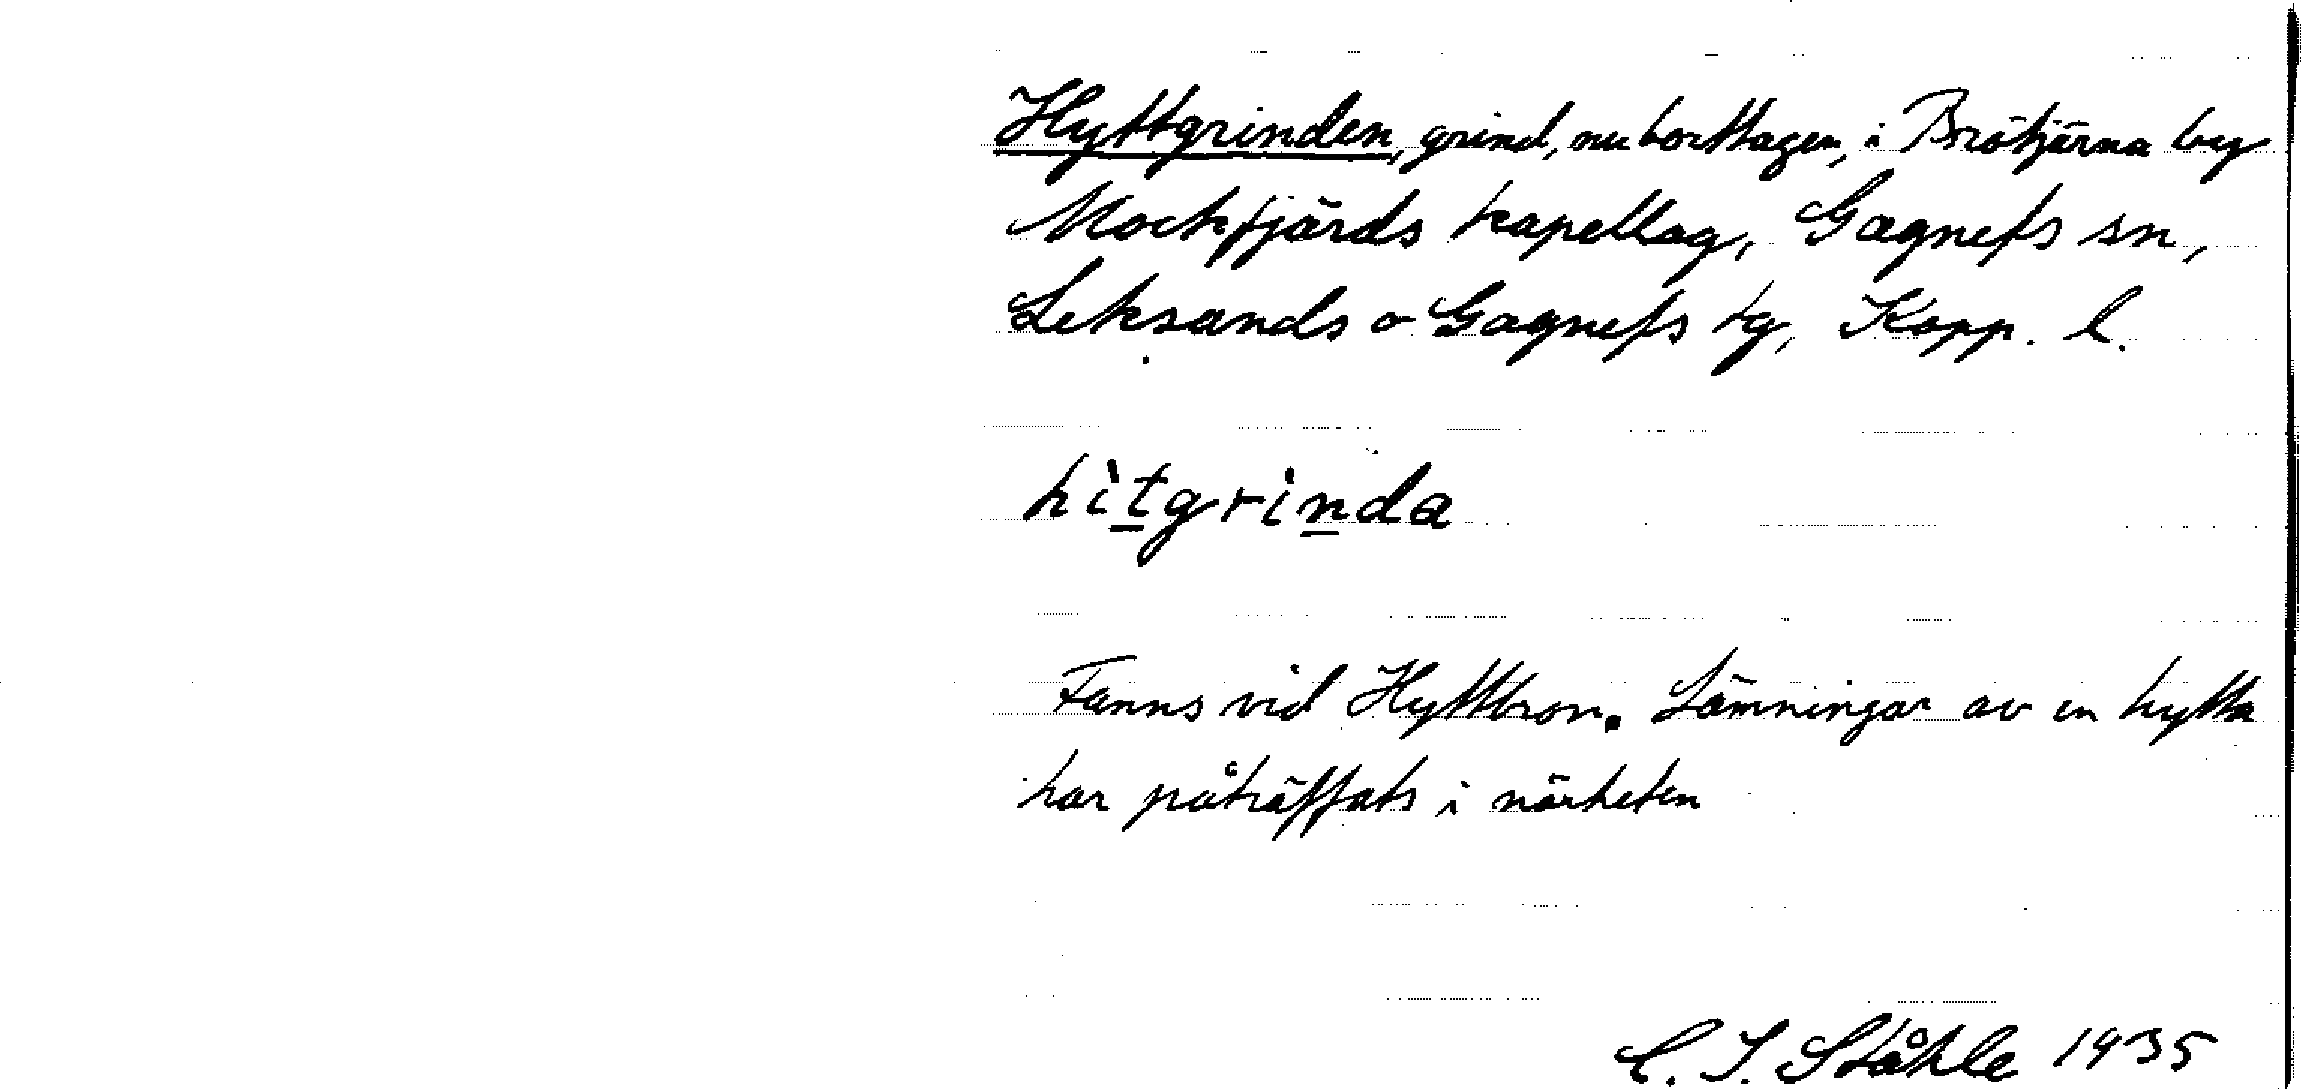 Hyttgrinden, grind, nu borttagen, i Brötjärna by
Mockfjärds kapellag, Gagnefs sn,
Leksands o Gagnefs tg, Kopp. l.
hitgrinda
Fanns vid Hyttbron. Lämningar av en hytta
har påträffats i närheten
C. I. Ståhle 1935